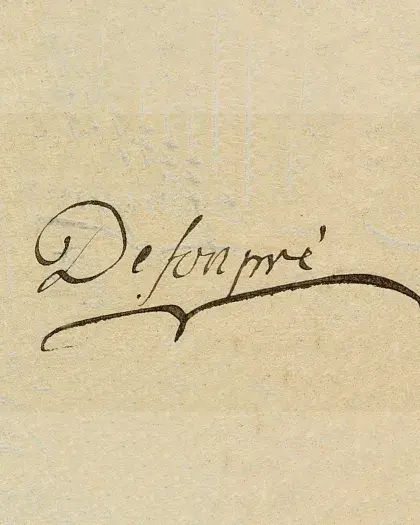 De fonpré